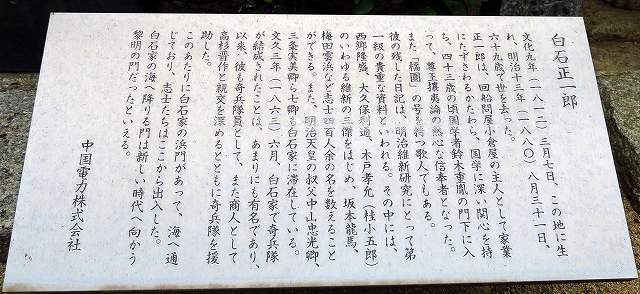 白石正一郎
文化九年（一八一二）三月七日、この地に生
れ、明治十三年（一八八〇）八月三十一日、
六十九歳で世を去った。
正一郎は、回船問屋小倉屋の主人として家業
にたずさわるかたわら、国学に深い関心を持
ち、四十三歳の頃国学者鈴木重胤の門下に入
って、尊王攘夷論の熱心な信奉者となった。
また、「橘圃」の号を持つ歌人でもある。
彼の残した日記は、明治維新研究にとって第
一級の貴重な資料といわれる。その中には、
西郷隆盛、大久保利通、木戸孝允（桂小五郎）
のいわゆる維新の三傑をはじめ、坂本龍馬、
梅田雲浜など志士四百人余の名を数えること
ができる。また、明治天皇の叔父中山忠光卿、
三条実美卿ら七卿も白石家に滞在している。
文久三年（一八六三）六月、白石家で奇兵隊
が結成されたことは、あまりにも有名であり、
以来、彼も奇兵隊員として、また商人として
高杉晋作と親交を深めるとともに奇兵隊を援
助した。
このあたりに白石家の浜門があって、海へ通
じており、志士たちはここから出入した。
白石家の海へ降りる門は新しい時代へ向かう
黎明の門だったといえる。
中国電力株式会社